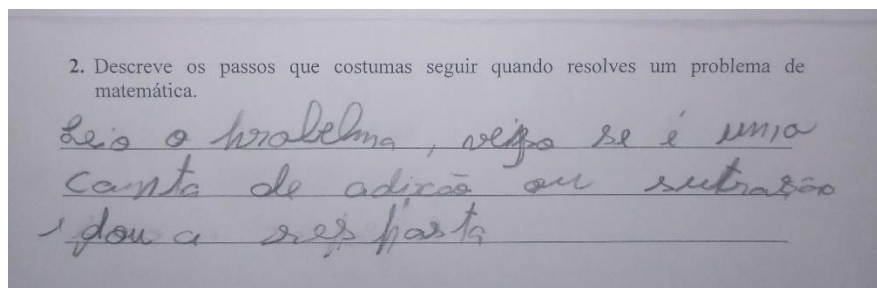 2. Descreve os passos que costumas seguir quando resolves um problema de
matemática.
Leio o probelma, vejo se é uma
conta de adixão ou sutração
, dou a resposta